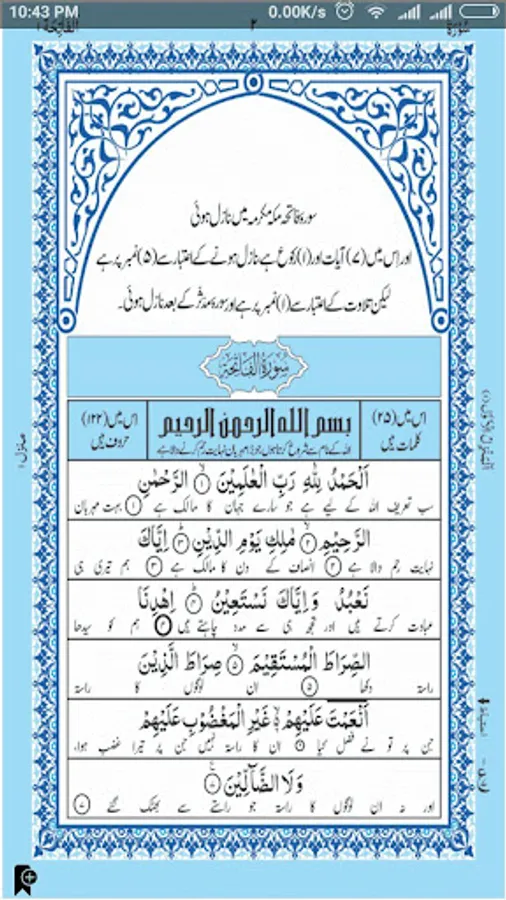 10:43 PM 0.00K/s
الْفَاتِحَة ١ ٢ سُوْرَة
سورۂ فاتحہ مکہ مکرمہ میں نازل ہوئی
اور اس میں (۷) آیات اور (۱) رکوع ہے نازل ہونے کے اعتبار سے (۵) نمبر پر ہے
لیکن تلاوت کے اعتبار سے (۱) نمبر پر ہے اور سورۂ مدثر کے بعد نازل ہوئی۔
سُوْرَةُ الْفَاتِحَةِ
اس میں (۲۵) کلمات ہیں
بسم الله الرحمن الرحيم
اللہ کے نام سے شروع کرتا ہوں جو بڑا مہربان نہایت رحم کرنے والا ہے
اس میں (۱۲۲) حروف ہیں
اَلْحَمْدُ لِلّٰهِ رَبِّ الْعٰلَمِيْنَ ۝۱ الرَّحْمٰنِ
سب تعریف اللہ کے لیے ہے جو سارے جہان کا مالک ہے ۱ بہت مہربان
الرَّحِيْمِ ۝۲ مٰلِكِ يَوْمِ الدِّيْنِ ۝۳ اِيَّاكَ
نہایت رحم والا ہے ۲ انصاف کے دن کا مالک ہے ۳ ہم تیری ہی
نَعْبُدُ وَاِيَّاكَ نَسْتَعِيْنُ ۝۴ اِهْدِنَا
عبادت کرتے ہیں اور تجھ ہی سے مدد چاہتے ہیں ۴ ہم کو سیدھا
الصِّرَاطَ الْمُسْتَقِيْمَ ۝۵ صِرَاطَ الَّذِيْنَ
راستہ دکھا ۵ ان لوگوں کا راستہ
اَنْعَمْتَ عَلَيْهِمْ ۝۶ غَيْرِ الْمَغْضُوْبِ عَلَيْهِمْ
جن پر تو نے فضل کیا ۶ ان کا راستہ نہیں جن پر تیرا غضب ہوا،
وَلَا الضَّآلِّيْنَ ۝۷
اور نہ ان لوگوں کا راستہ جو راستے سے بھٹک گئے ۷
منزل ۱